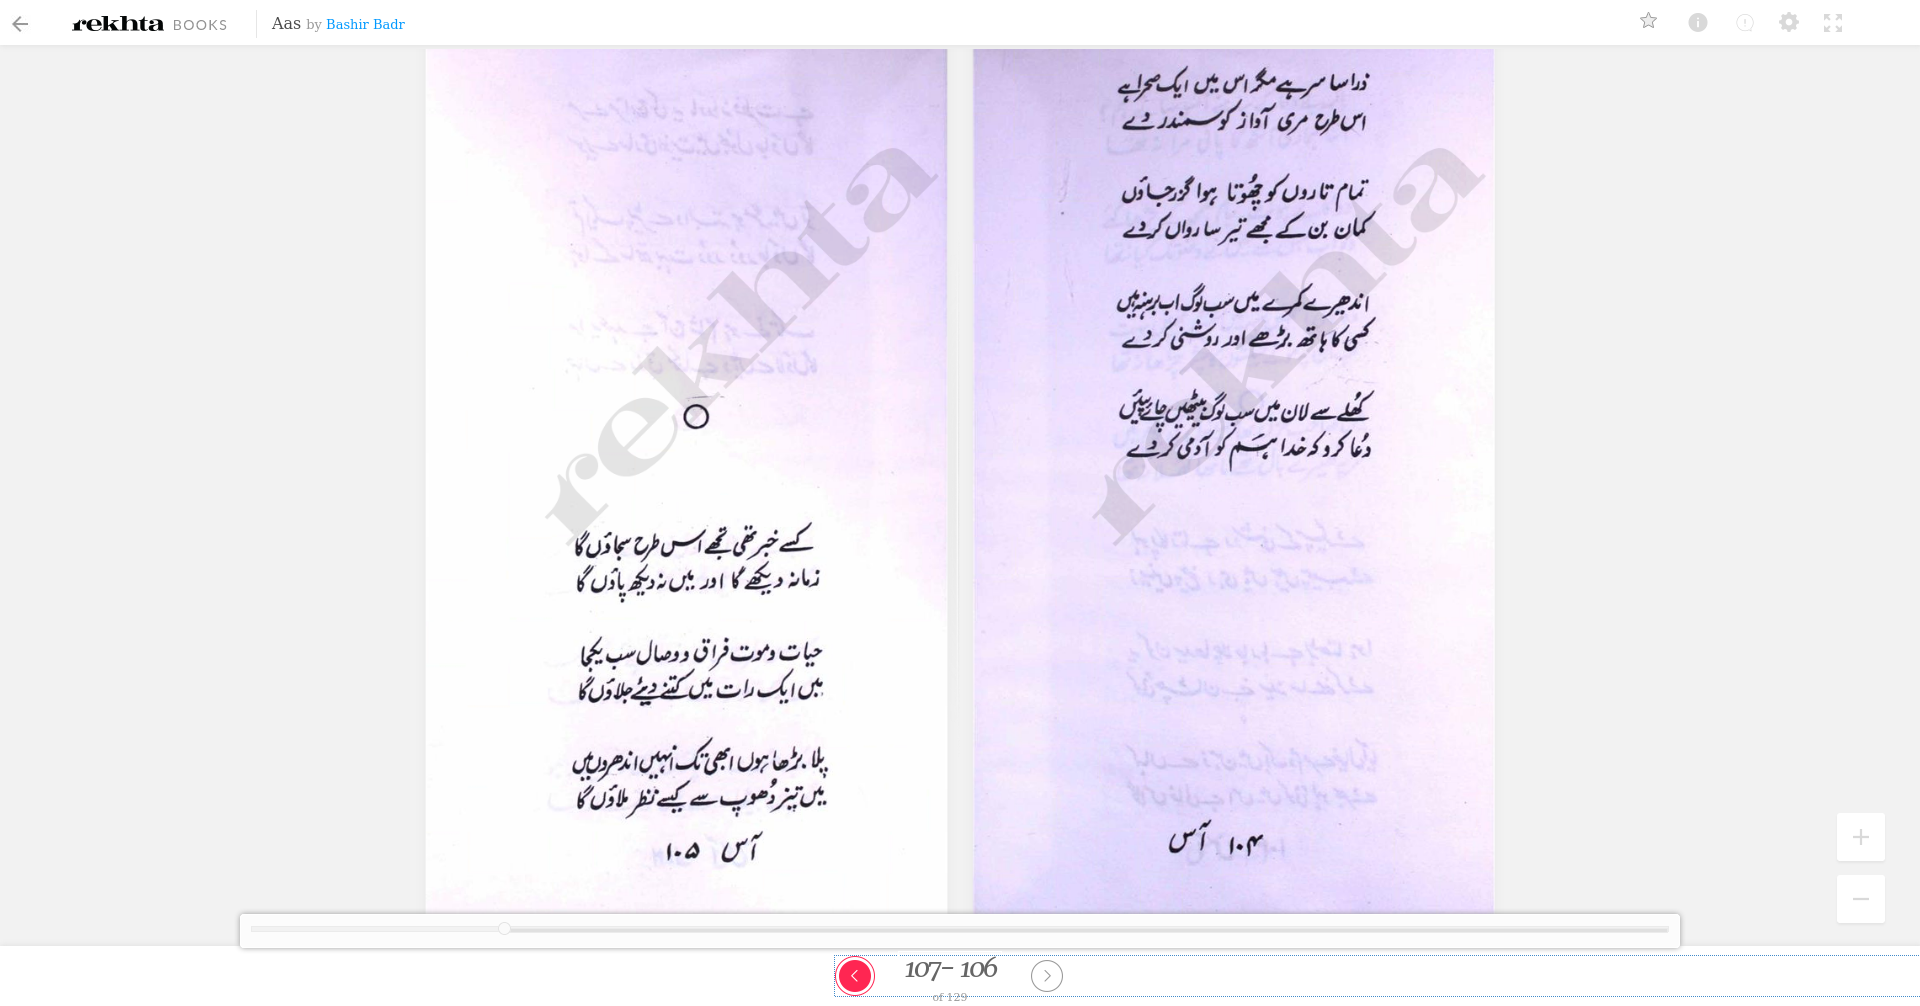 rekhta BOOKS Aas by Bashir Badr
ذرا سا سر ہے مگر اس میں ایک صحرا ہے
اس طرح مری آواز کو سمندر دے
تمام تاروں کو چھُوتا ہوا گزر جاؤں
کمان بن کے مجھے تیر سا رواں کر دے
اندھیرے کمرے میں سب لوگ اب برہنہ ہیں
کسی کا ہاتھ بڑھے اور روشنی کر دے
کھُلے سے لان میں سب لوگ بیٹھیں چائے پیئیں
دُعا کرو کہ خدا ہَم کو آدمی کر دے
۱۰۴ آس
کسے خبر تھی تجھے اس طرح سجاؤں گا
زمانہ دیکھے گا اور میں نہ دیکھ پاؤں گا
حیات و موت فراق و وصال سب یکجا
میں ایک رات میں کتنے دیئے جلاؤں گا
پلا بڑھا ہوں ابھی تک انہیں اندھروں میں
میں تیز دُھوپ سے کیسے نظر ملاؤں گا
آس ۱۰۵
rekhta
rekhta
107- 106
of 129